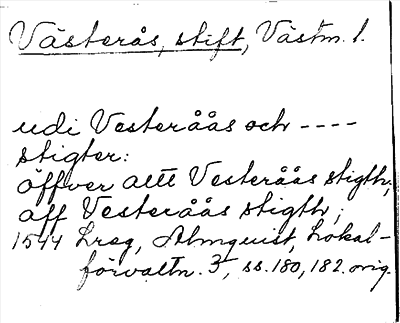 Västerås, stift, Västm. l.
udi Vesteråås och ----
stigter:
öffver altt Vesteråås stigth;
aff Vesteråås stigth;
1544 Lreg, Almquist, Lokal-
förvaltn. 3, ss. 180, 182. orig.